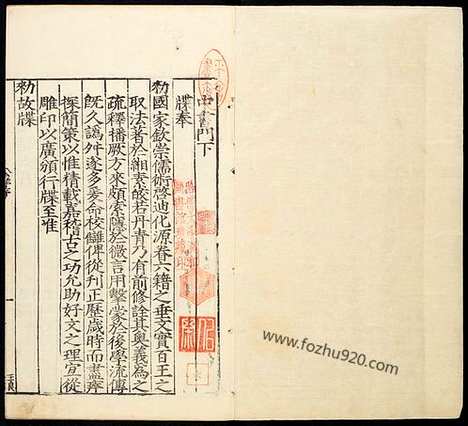 中書門下
牒奉
勑國家欽崇儒術啓迪化源眷六籍之垂文實百王之
取法著於緗素皎若丹青乃有前修詮其奧義為之
疏釋播厥方來頗索隱於微言用擊蒙於後學流傳
旣久譌舛遂多爰命校讎俾從刋正歷歲時而盡瘁
探簡策以惟精載嘉稽古之功允助好文之理宜從
雕印以廣頒行牒至准
勑故牒
www.fozhu920.com